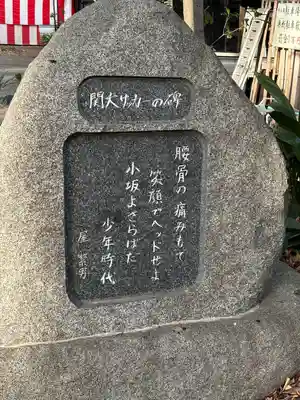 関大サッカーの碑
腰骨の痛みもて
笑顔でヘッドせよ
小坂よさらばだ
少年時代